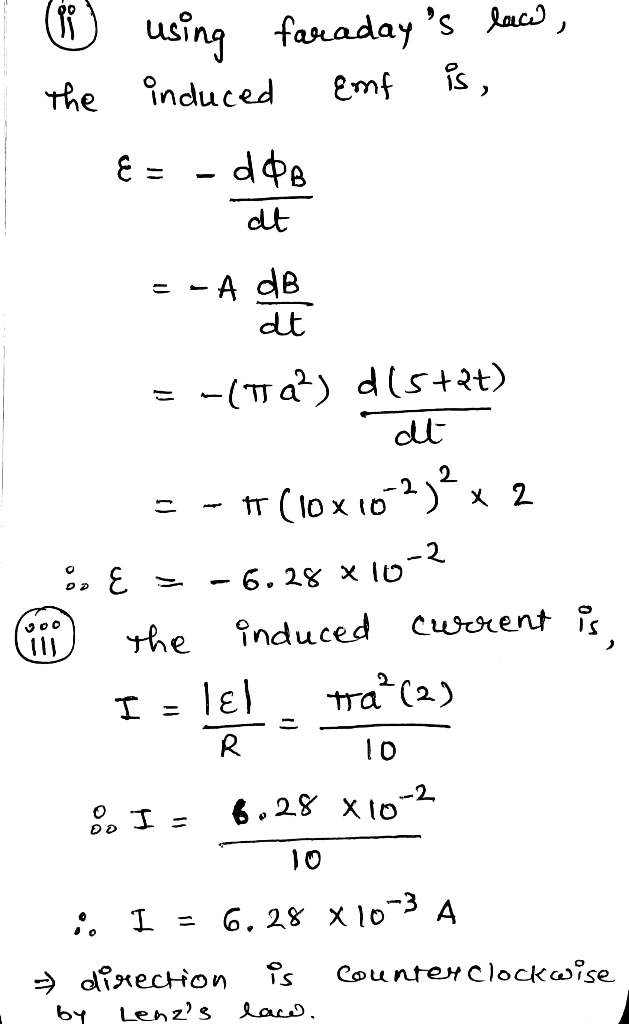 (ii) using faraday's law,
the induced Emf is,
ε = - dΦB/dt
= - A dB/dt
= -(πa²) d(5+2t)/dt
= - π(10×10⁻²)² × 2
∴ ε = - 6.28 × 10⁻²
(iii) the induced current is,
I = |ε|/R = πa²(2)/10
∴ I = 6.28 × 10⁻²/10
∴ I = 6.28 × 10⁻³ A
⇒ direction is counterclockwise
by Lenz's law.